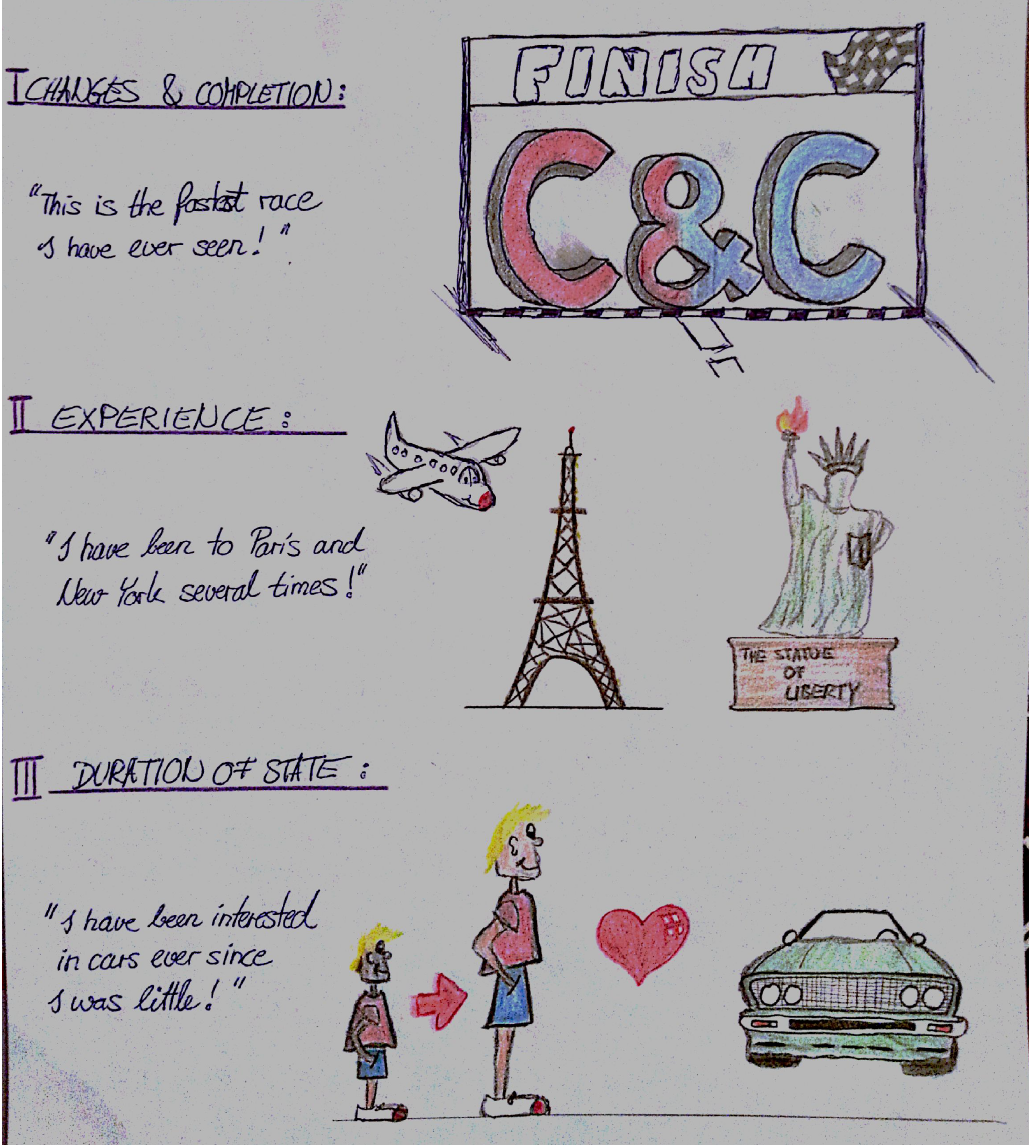 I CHANGES & COMPLETION:
FINISH
C&C
"This is the fastest race
I have ever seen!"
II EXPERIENCE:
"I have been to Paris and
New York several times!"
THE STATUE
OF
LIBERTY
III DURATION OF STATE:
"I have been interested
in cars ever since
I was little!"